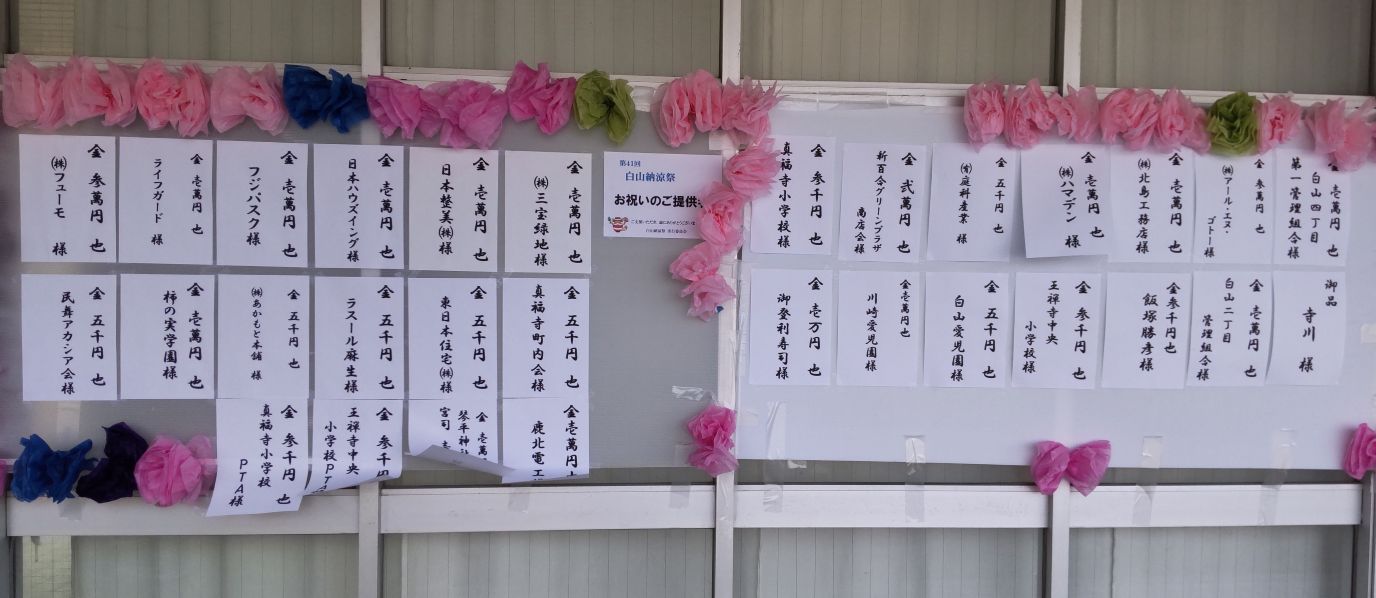 第41回
白山納涼祭
お祝いのご提供
金 壱萬円 也
㈱三宝緑地様
金 壱萬円 也
日本整美㈱様
金 壱萬円 也
日本ハウズイング様
金 壱萬円 也
フジ・バスク様
金 壱萬円 也
ライフガード 様
金 参萬円 也
㈱フューモ 様
金 五千円 也
真福寺町内会様
金 五千円 也
東日本住宅㈱様
金 五千円 也
ラスール麻生様
金 五千円 也
㈱あかもと本舗 様
金 五千円 也
柿の実学園様
金 五千円 也
民舞アカシア会様
金壱萬円
鹿北電工
金 壱萬
琴平神社
宮司
金 参千円
王禅寺中央
小学校PTA
金 参千円 也
真福寺小学校
PTA様
壱萬円 也
白山四丁目
第一管理組合様
金 参萬円 也
㈱アール・エヌ・
ゴトー様
金 壱萬円 也
㈱北島工務店様
金 壱萬円 也
㈱ハマデン 様
金 五千円 也
㈲庭科産業 様
金 弐萬円 也
新百合グリーンプラザ
商店会様
金 参千円 也
真福寺小学校様
御品
寺川 様
金 壱萬円 也
白山二丁目
管理組合様
金参千円也
飯塚勝彦様
金 参千円 也
王禅寺中央
小学校様
金 五千円 也
白山愛児園様
金壱萬円也
川崎愛児園様
金 壱万円 也
御登利寿司様